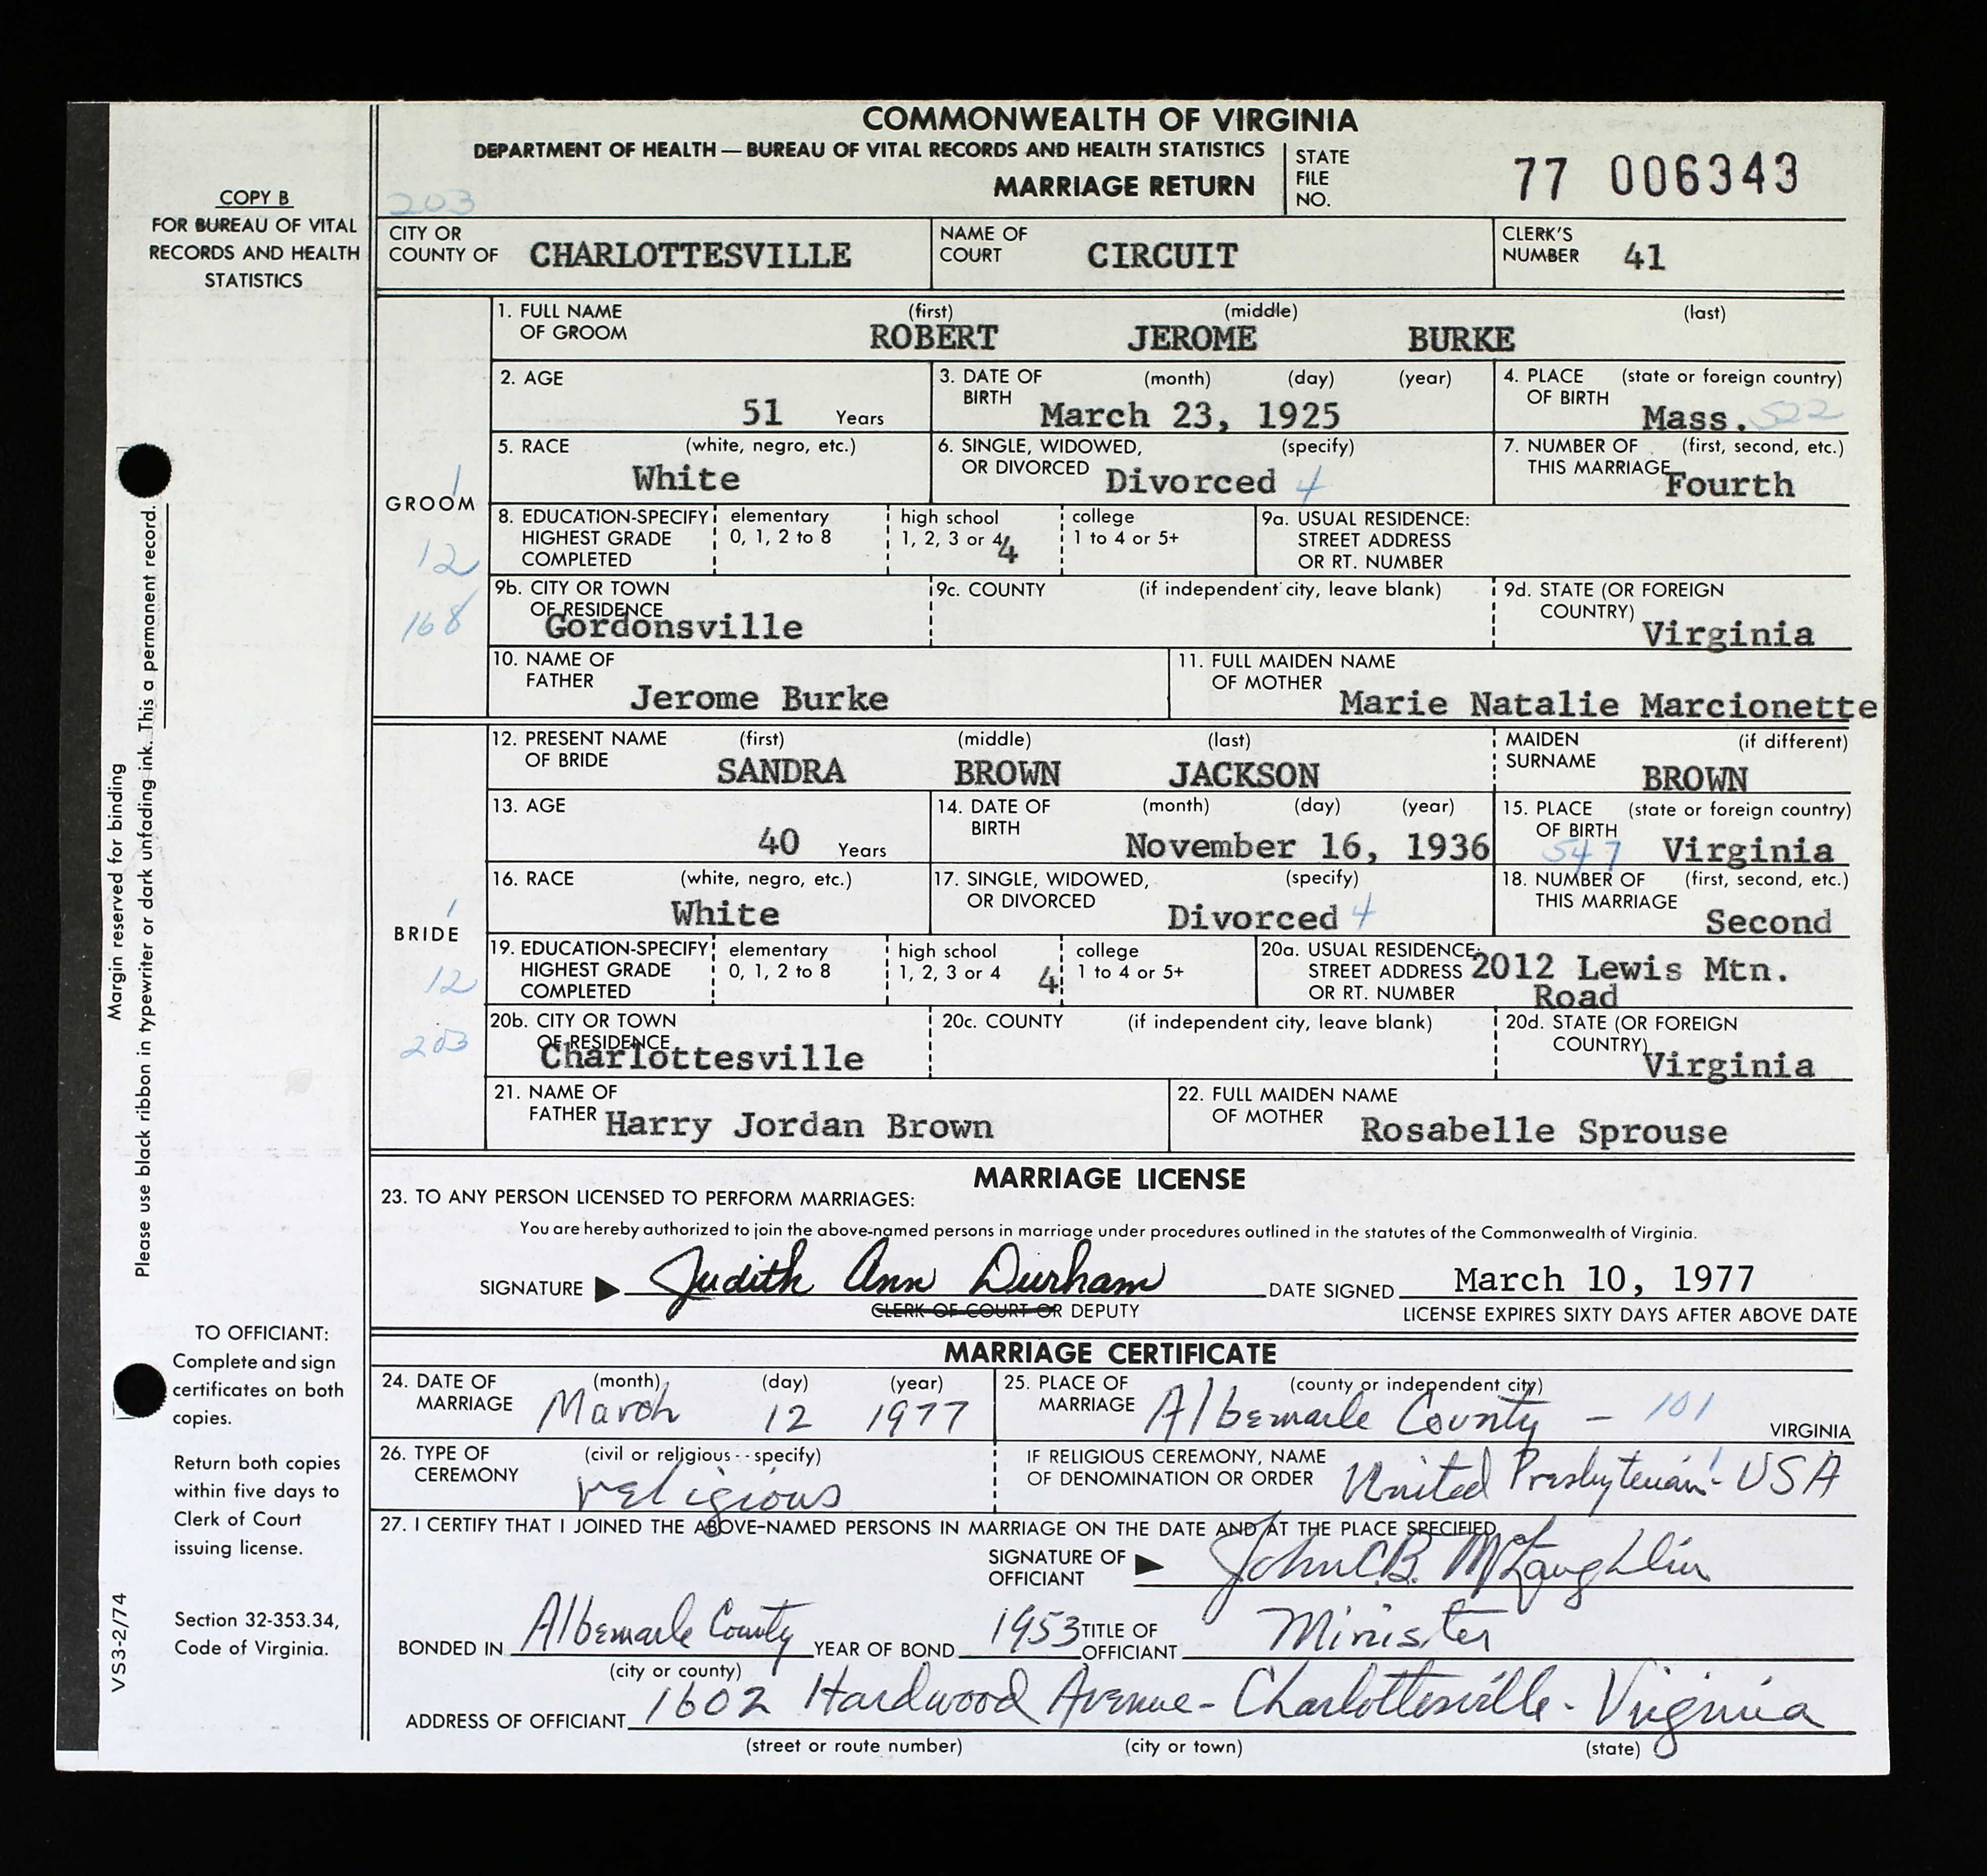 COMMONWEALTH OF VIRGINIA
DEPARTMENT OF HEALTH — BUREAU OF VITAL RECORDS AND HEALTH STATISTICS
MARRIAGE RETURN
STATE FILE NO. 77 006343
COPY B
FOR BUREAU OF VITAL
RECORDS AND HEALTH
STATISTICS
203
CITY OR COUNTY OF CHARLOTTESVILLE NAME OF COURT CIRCUIT CLERK'S NUMBER 41
GROOM
1
12
168
1. FULL NAME OF GROOM (first) (middle) (last)
ROBERT JEROME BURKE
2. AGE 51 Years 3. DATE OF BIRTH (month) (day) (year) March 23, 1925 4. PLACE OF BIRTH (state or foreign country) Mass. 522
5. RACE (white, negro, etc.) White 6. SINGLE, WIDOWED, OR DIVORCED (specify) Divorced 4 7. NUMBER OF THIS MARRIAGE (first, second, etc.) Fourth
8. EDUCATION-SPECIFY HIGHEST GRADE COMPLETED elementary 0, 1, 2 to 8 high school 1, 2, 3 or 4 4 college 1 to 4 or 5+ 9a. USUAL RESIDENCE: STREET ADDRESS OR RT. NUMBER
9b. CITY OR TOWN OF RESIDENCE Gordonsville 9c. COUNTY (if independent city, leave blank) 9d. STATE (OR FOREIGN COUNTRY) Virginia
10. NAME OF FATHER Jerome Burke 11. FULL MAIDEN NAME OF MOTHER Marie Natalie Marcionette
BRIDE
1
12
203
12. PRESENT NAME OF BRIDE (first) (middle) (last) MAIDEN SURNAME (if different)
SANDRA BROWN JACKSON BROWN
13. AGE 40 Years 14. DATE OF BIRTH (month) (day) (year) November 16, 1936 15. PLACE OF BIRTH (state or foreign country) 547 Virginia
16. RACE (white, negro, etc.) White 17. SINGLE, WIDOWED, OR DIVORCED (specify) Divorced 4 18. NUMBER OF THIS MARRIAGE (first, second, etc.) Second
19. EDUCATION-SPECIFY HIGHEST GRADE COMPLETED elementary 0, 1, 2 to 8 high school 1, 2, 3 or 4 4 college 1 to 4 or 5+ 20a. USUAL RESIDENCE: STREET ADDRESS OR RT. NUMBER 2012 Lewis Mtn. Road
20b. CITY OR TOWN OF RESIDENCE Charlottesville 20c. COUNTY (if independent city, leave blank) 20d. STATE (OR FOREIGN COUNTRY) Virginia
21. NAME OF FATHER Harry Jordan Brown 22. FULL MAIDEN NAME OF MOTHER Rosabelle Sprouse
MARRIAGE LICENSE
23. TO ANY PERSON LICENSED TO PERFORM MARRIAGES:
You are hereby authorized to join the above-named persons in marriage under procedures outlined in the statutes of the Commonwealth of Virginia.
SIGNATURE Judith Ann Durham DATE SIGNED March 10, 1977
CLERK OF COURT OR DEPUTY LICENSE EXPIRES SIXTY DAYS AFTER ABOVE DATE
MARRIAGE CERTIFICATE
24. DATE OF MARRIAGE (month) (day) (year) March 12 1977 25. PLACE OF MARRIAGE (county or independent city) Albemarle County – 101 VIRGINIA
26. TYPE OF CEREMONY (civil or religious - - specify) religious IF RELIGIOUS CEREMONY, NAME OF DENOMINATION OR ORDER United Presbyterian - USA
27. I CERTIFY THAT I JOINED THE ABOVE-NAMED PERSONS IN MARRIAGE ON THE DATE AND AT THE PLACE SPECIFIED
SIGNATURE OF OFFICIANT John C.B. McLaughlin
BONDED IN Albemarle County YEAR OF BOND 1953 TITLE OF OFFICIANT Minister
(city or county)
ADDRESS OF OFFICIANT 1602 Hardwood Avenue - Charlottesville - Virginia
(street or route number) (city or town) (state)
Margin reserved for binding
Please use black ribbon in typewriter or dark unfading ink. This a permanent record.
TO OFFICIANT:
Complete and sign
certificates on both
copies.
Return both copies
within five days to
Clerk of Court
issuing license.
Section 32-353.34,
Code of Virginia.
VS3-2/74